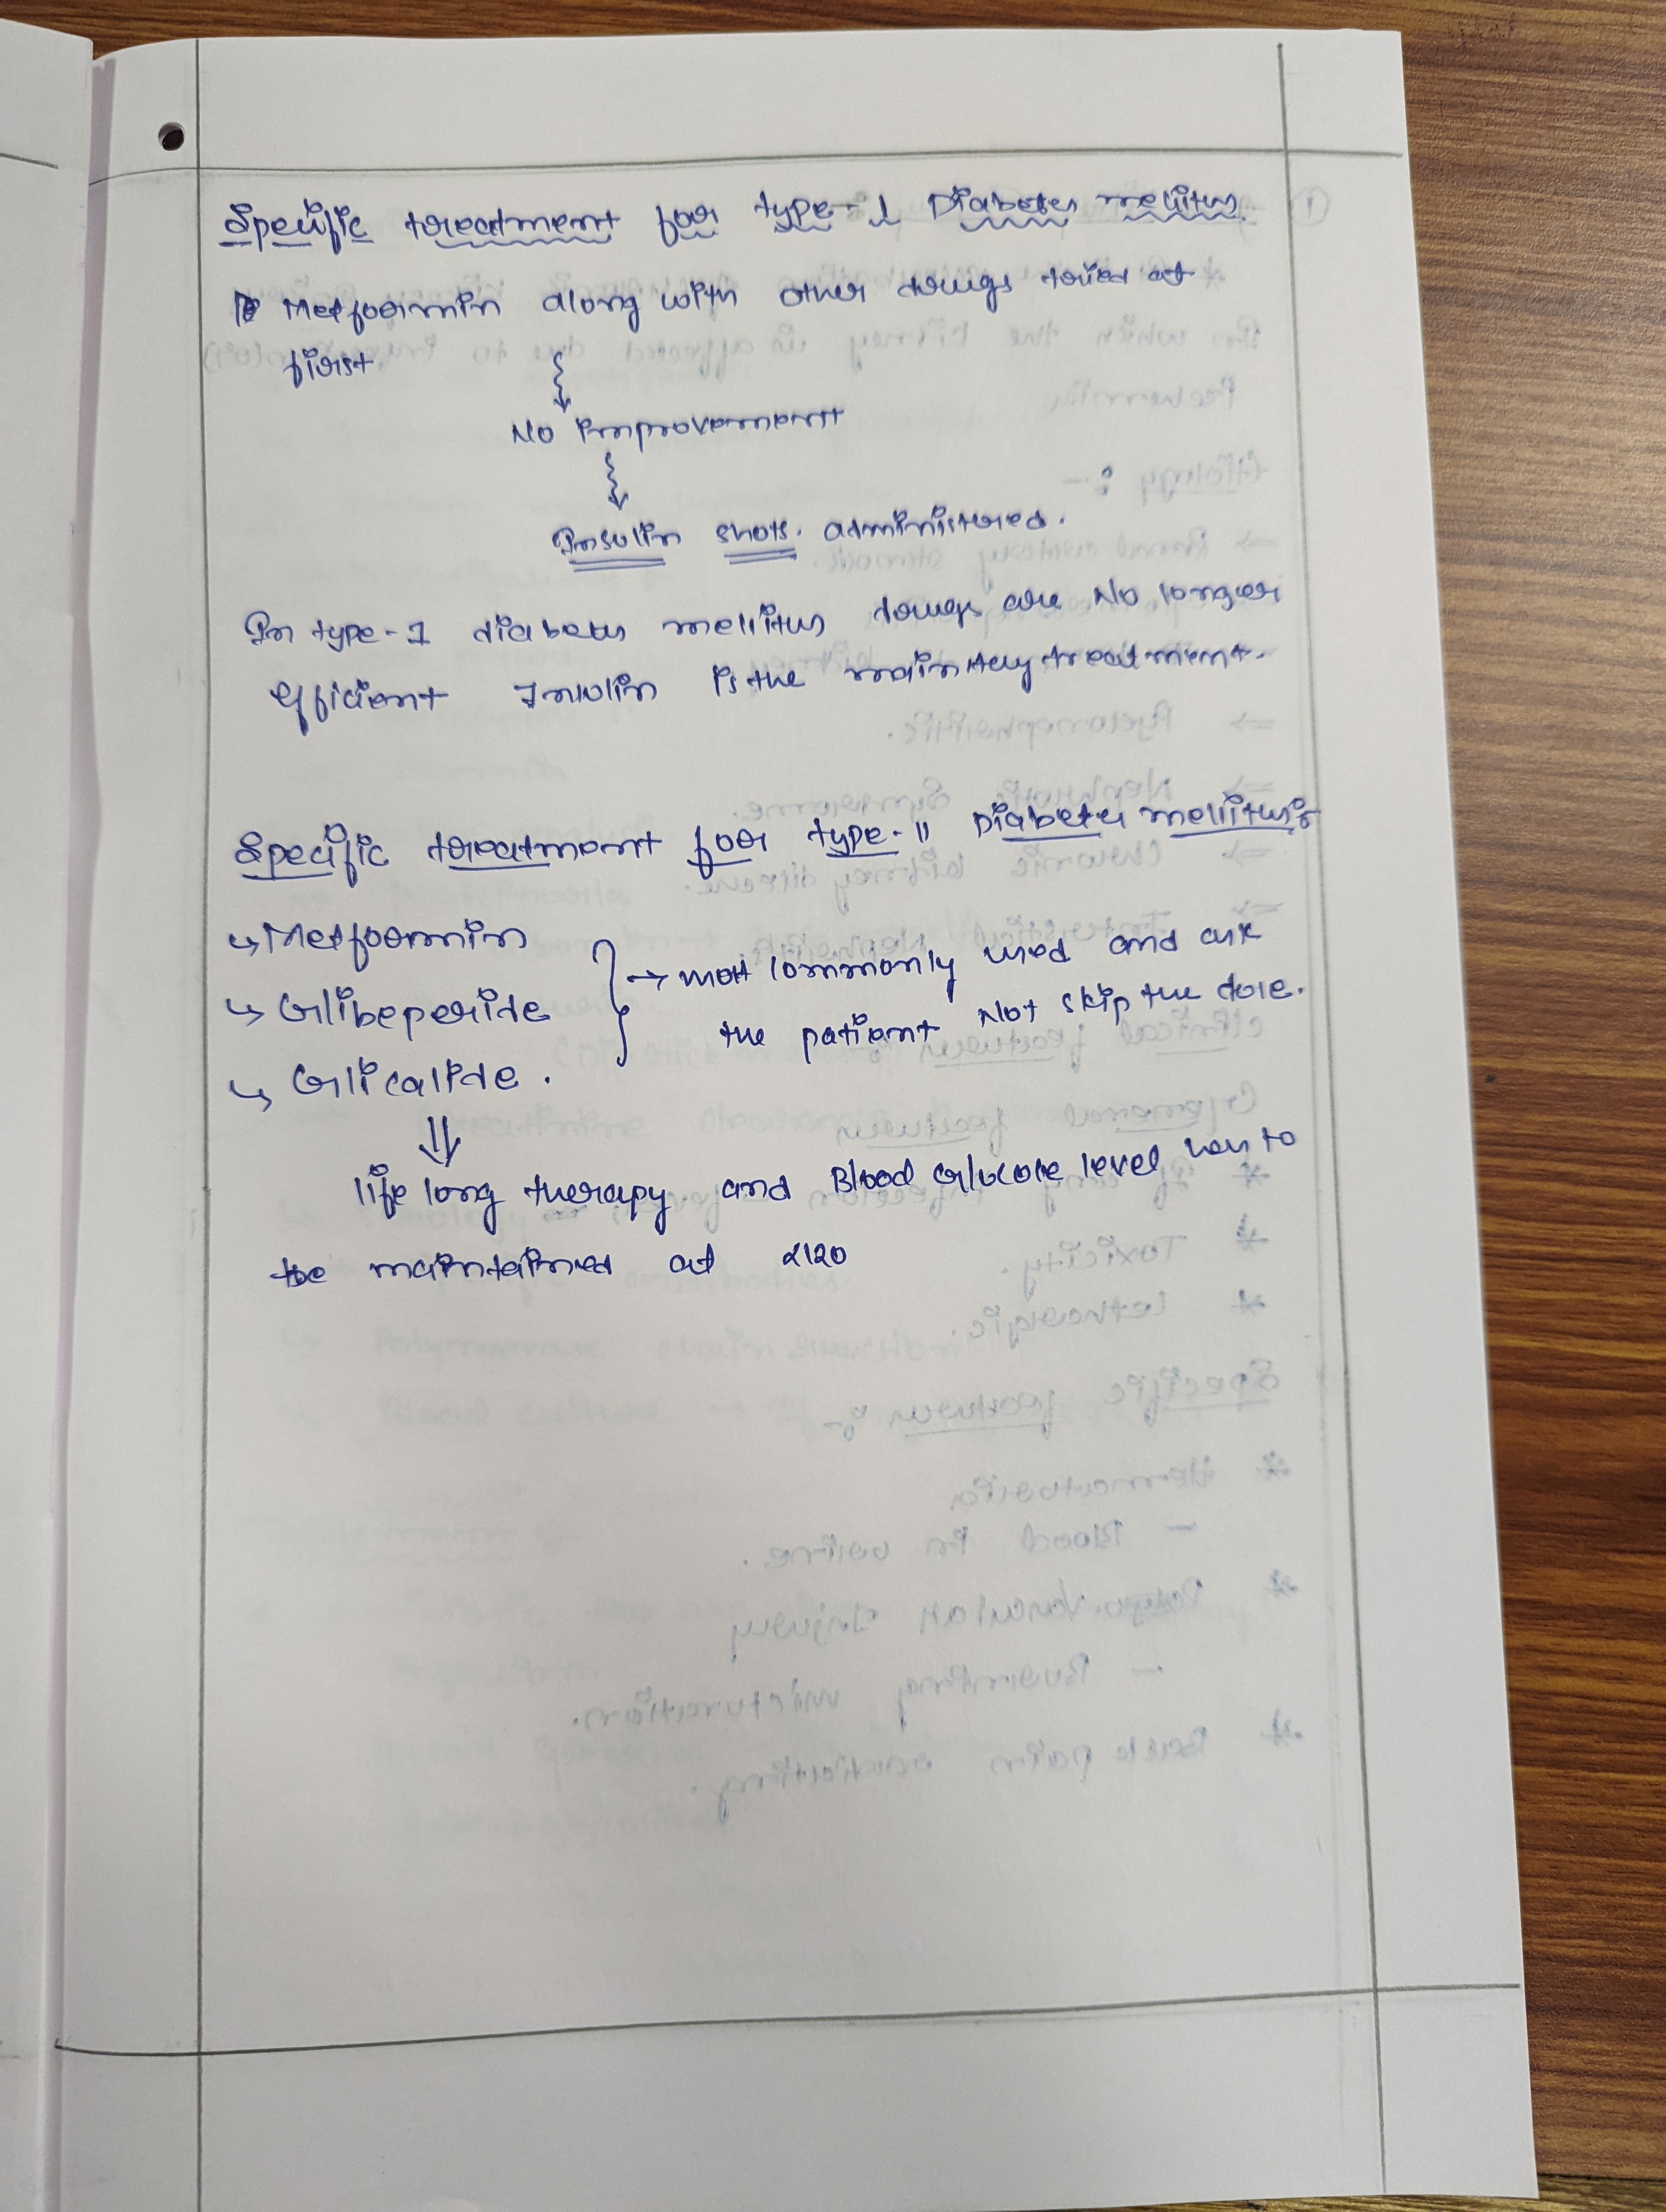 Specific treatment for type-1 Diabetes mellitus.
Metformin along with other drugs tried at
first
No Improvement
Insulin shots. administered.
In type-1 diabetes mellitus drugs are No longer
efficient Insulin is the main treatment.
Specific treatment for type-II Diabetes mellitus
↳ Metformin
↳ Glibeperide
↳ Glicalide.
→ most commonly used and ask
the patient Not skip the dose.
⇓
life long therapy and Blood Glucose level has to
be maintained at <120